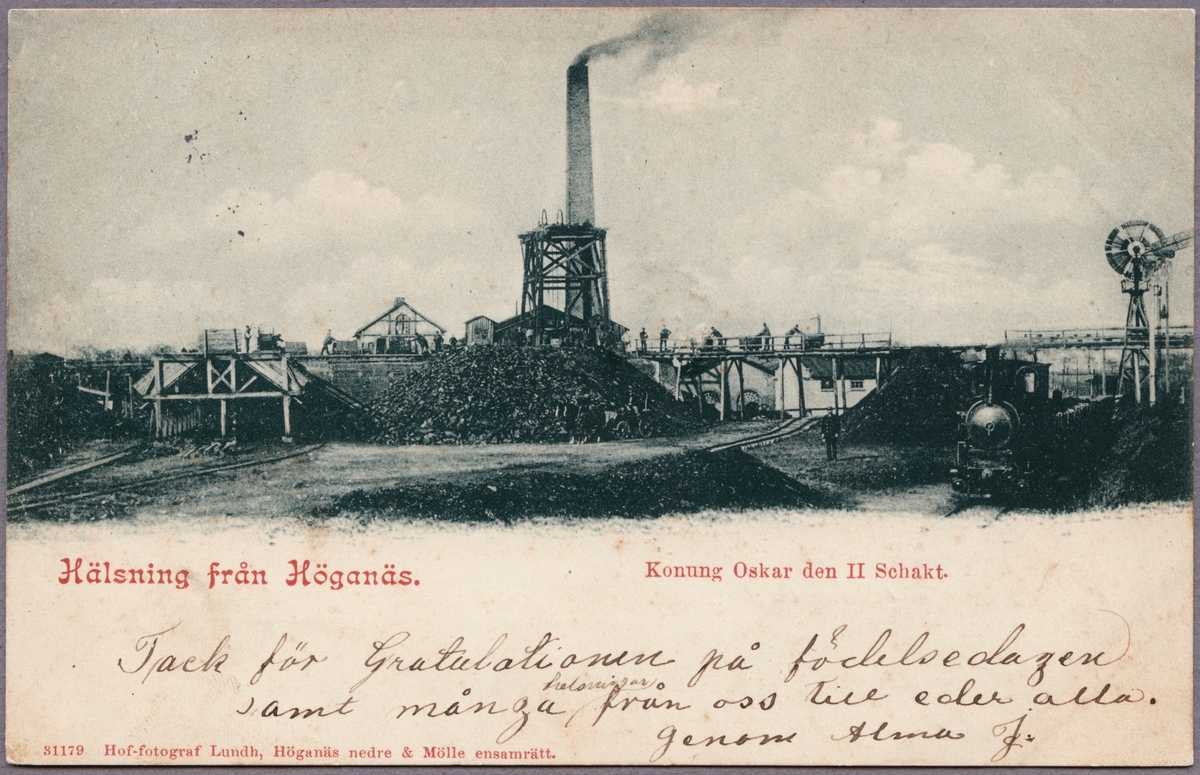 Hälsning från Höganäs.
Konung Oskar den II Schakt.
Tack för Gratulationen på födelsedagen
samt många helsningar från oss till eder alla.
genom Alma J:
31179 Hof-fotograf Lundh, Höganäs nedre & Mölle ensamrätt.